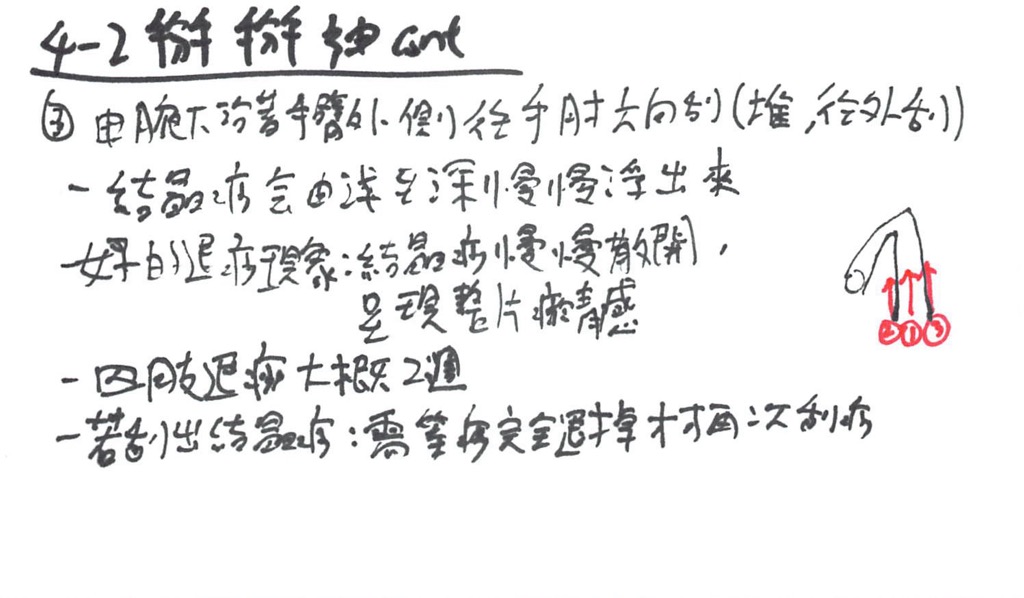 4-2 掰掰袖 cont
③ 由腕下沿著手臂外側往手肘方向刮(推,往外刮)
- 結晶痧会由浅至深慢慢浮出來
- 好的退痧現象:結晶痧慢慢散開,
呈現整片瘀青感
- 四肢退痧大概2週
- 若刮出結晶痧:需等痧完全退掉才再次刮痧
② ① ③